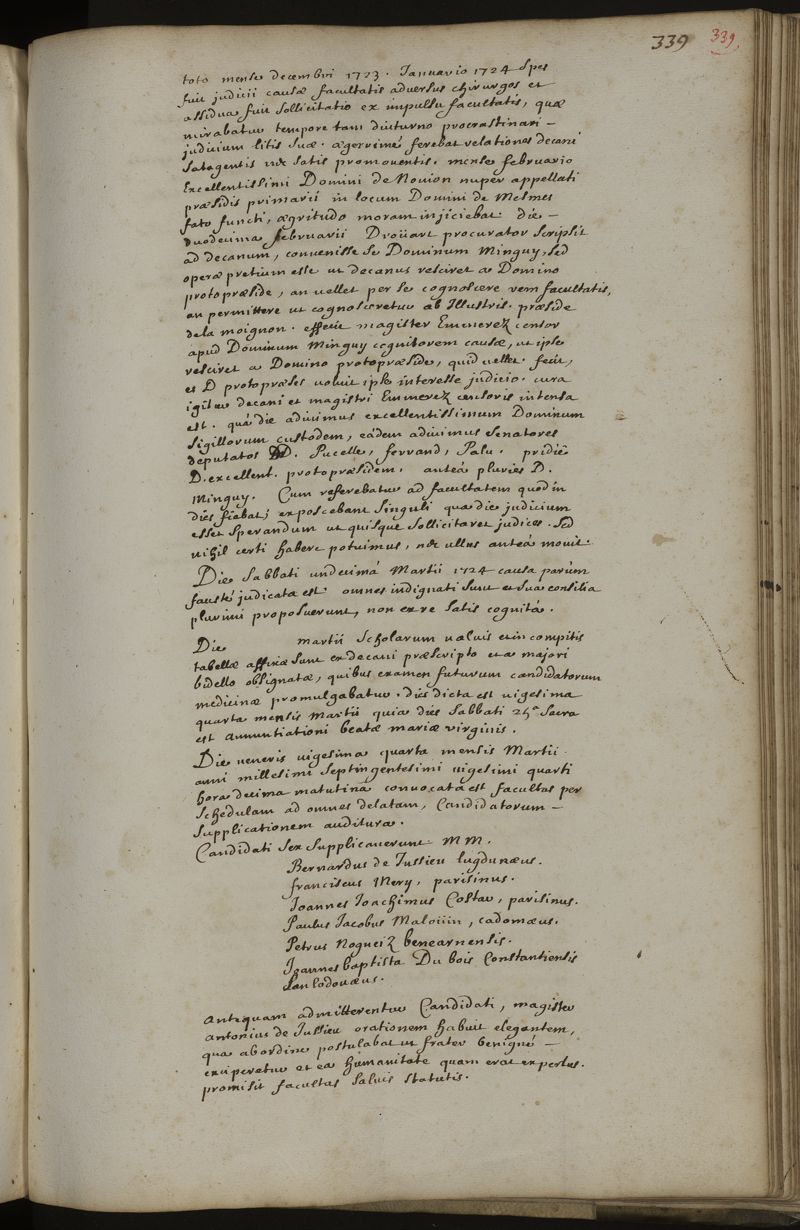 339 339.
toto mense decembri 1723. Januario 1724 spes
fuit judicii causæ facultatis adversus chirurgos et
assidua fuit sollicitatio ex impulsu facultatis, quæ
mirabatur tempore tam diuturno procrastinari –
judicium litis suæ. ægerrimé ferebat relationes decani
satagentis nec satis promoventis. mense februario
Excellentissimi Domini de Novion nuper appellati
præsidis primarii in locum Domini de Mesmes
fato functi, ægritudo moram injiciebat die –
duodecima februarii Droüart procurator scripsit
ad decanum, convenisse se Dominum Minguy, sed
operæ pretium esse ut decanus resciret a Domino
protopræside, an vellet per se cognoscere rem facultatis,
an permittere ut cognosceretur ab Illustris. præside
de la moignon. effecit magister Emmerez censor
apud Dominum Minguy cognitorem causæ, ut ipse
resciret a Domino protopræside, quid vellet. fecit,
et D protopræses voluit ipse interesse judicio. cura
igitur decani et magistri Emmerez censoris intensa
est. quâ die adivimus excellentissimum Dominum
sigillorum custodem, eâdem adivimus senatores
deputatos DD. Pucelle, ferrand, Palu. pridiè
D. excellent. protopræsidem, anteà pluries D.
Minguy. Cum referebatur ad facultatem quod in
dies fiebat; exposcebant singuli qua die judicium
esset sperandum ut quisque sollicitaret judices. sed
nihil certi habere potuimus, nec ullus anteà movit.
Die sabbati undecimâ Martii 1724 causa parùm
faustè judicata est. omnes indignati sunt et sua consilia
plurimi proposuerunt, non ex re satis cognitâ.
Die martii scholarum valvis et in compitis
tabellæ affixæ sunt ex decani præscripto et a majori
bidello obsignatæ, quibus examen futurum candidatorum
medicinæ promulgabatur. dies dicta est vigesima
quarta mensis martii quia dies sabbati 25.a sacra
est Annuntiationi beatæ mariæ virginis.
Die veneris vigesima quarta mensis Martii
anni millesimi septingentesimi vigesimi quarti
hora decima matutinâ convocata est facultas per
schedulam ad omnes delatam, Candidatorum –
supplicationem auditura.
Candidati sex supplicaverunt MM.
Bernardus de Jussieu lugdunæus.
franciscus Mery, parisinus.
Joannes Joachimus Costar, parisinus.
Paulus Jacobus Maloüin, cadomæus.
Petrus Nogueiz benearnensis.
Joannes baptista Du bois Constantiensis
sanlodovæus.
Antequam admitterentur Candidati, magister
Antonius de Jussieu orationem habuit elegantem,
qua ab ordine postulabat ut frater benignè –
exciperetur et ea humanitate quam erat expertus.
promisit facultas salvis statutis.